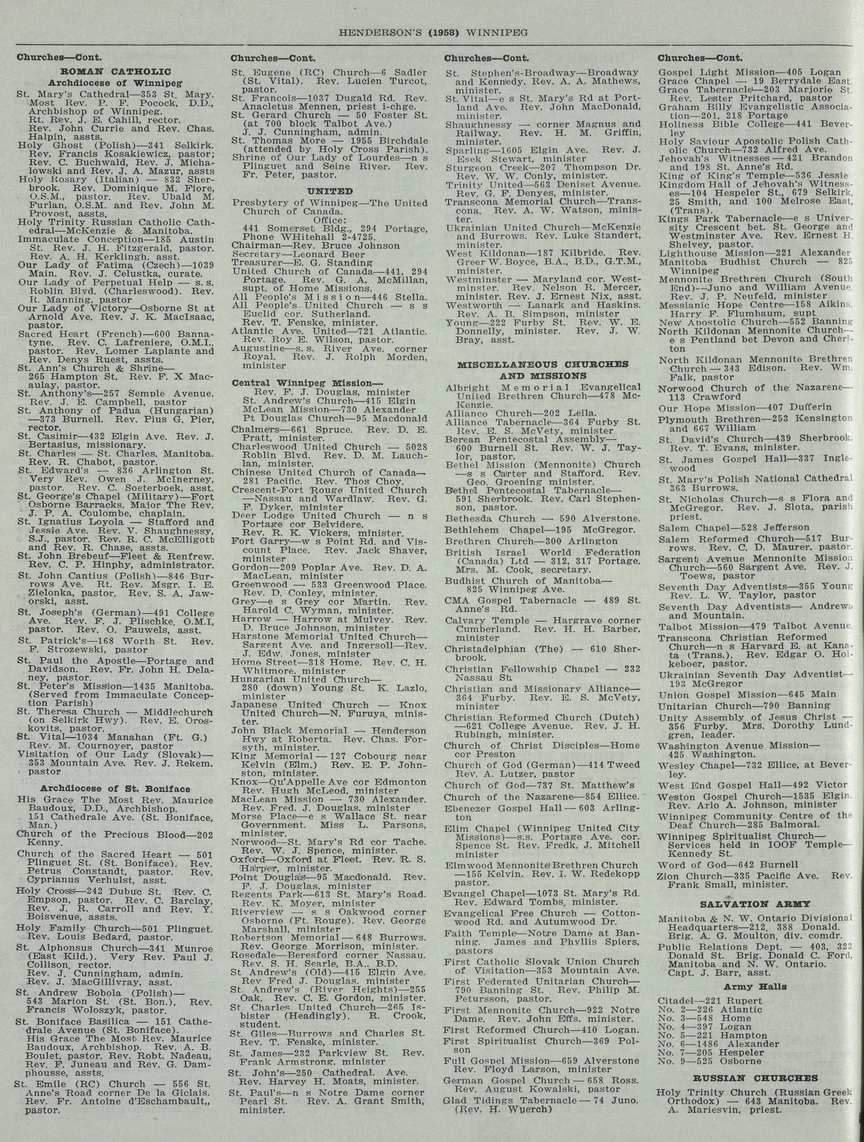 HENDERSON'S (1958) WINNIPEG
Churches—Cont.
ROMAN CATHOLIC
Archdiocese of Winnipeg
St. Mary's Cathedral—353 St. Mary.
Most Rev. P. F. Pocock, D.D.,
Archbishop of Winnipeg.
Rt. Rev. J. E. Cahill, rector.
Rev. John Currie and Rev. Chas.
Halpin, assts.
Holy Ghost (Polish)—341 Selkirk.
Rev. Francis Kosakiewicz, pastor;
Rev. C. Buchwald, Rev. J. Micha-
lowski and Rev. J. A. Mazur, assts
Holy Rosary (Italian) — 832 Sher-
brook. Rev. Dominique M. Fiore,
O.S.M., pastor. Rev. Ubald M.
Furlan, O.S.M. and Rev. John M.
Provost, assts.
Holy Trinity Russian Catholic Cath-
edral—McKenzie & Manitoba.
Immaculate Conception—185 Austin
St. Rev. J. H. Fitzgerald, pastor.
Rev. A. H. Kerklingh, asst.
Our Lady of Fatima (Czech)—1039
Main. Rev. J. Celustka, curate.
Our Lady of Perpetual Help — s.s.
Roblin Blvd. (Charleswood). Rev.
R. Manning, pastor
Our Lady of Victory—Osborne St at
Arnold Ave. Rev. J. K. MacIsaac,
pastor.
Sacred Heart (French)—600 Banna-
tyne. Rev. C. Lafreniere, O.M.I.,
pastor. Rev. Lomer Laplante and
Rev. Denys Ruest, assts.
St. Ann's Church & Shrine—
265 Hampton St. Rev. F. X Mac-
aulay, pastor.
St. Anthony's—257 Semple Avenue.
Rev. J. E. Campbell, pastor
St. Anthony of Padua (Hungarian)
—373 Burnell. Rev. Pius G. Pier,
rector.
St. Casimir—432 Elgin Ave. Rev. J.
Bertasius, missionary.
St. Charles — St. Charles, Manitoba.
Rev. R. Chabot, pastor.
St. Edward's — 836 Arlington St.
Very Rev. Owen J. McInerney,
pastor. Rev. C. Soeterboek, asst.
St. George's Chapel (Military)—Fort
Osborne Barracks. Major The Rev.
J. P. A. Coulombe, chaplain.
St. Ignatius Loyola — Stafford and
Jessie Ave. Rev. V. Shaughnessy,
S.J., pastor. Rev. R. C. McElligott
and Rev. R. Chase, assts.
St. John Brebeuf—Fleet & Renfrew.
Rev. C. P. Hinphy, administrator.
St. John Cantius (Polish)—846 Bur-
rows Ave. Rt. Rev. Msgr. I. E.
Zielonka, pastor. Rev. S. A. Jaw-
orski, asst.
St. Joseph's (German)—491 College
Ave. Rev. F. J. Plischke, O.M.I,
pastor. Rev. O. Fauwels, asst.
St. Patrick's—168 Worth St. Rev.
F. Strozewski, pastor
St. Paul the Apostle—Portage and
Davidson. Rev. Fr. John H. Dela-
ney, pastor.
St. Peter's Mission—1435 Manitoba.
(Served from Immaculate Concep-
tion Parish)
St. Theresa Church — Middlechurch
(on Selkirk Hwy). Rev. E. Oros-
kovits, pastor.
St. Vital—1034 Manahan (Ft. G.)
Rev. M. Cournoyer, pastor
Visitation of Our Lady (Slovak)—
353 Mountain Ave. Rev. J. Rekem,
pastor
Archdiocese of St. Boniface
His Grace The Most Rev. Maurice
Baudoux, D.D., Archbishop.
151 Cathedral Ave. (St. Boniface,
Man.)
Church of the Precious Blood—202
Kenny.
Church of the Sacred Heart — 501
Plinguet St. (St. Boniface). Rev.
Petrus Constandt, pastor. Rev.
Cyprianus Verhulst, asst.
Holy Cross—242 Dubuc St. Rev. C.
Empson, pastor. Rev. C. Barclay,
Rev. J. R. Carroll and Rev. Y.
Boisvenue, assts.
Holy Family Church—501 Plinguet.
Rev. Louis Bedard, pastor.
St. Alphonsus Church—341 Munroe
(East Kild.). Very Rev. Paul J.
Collison, rector.
Rev. J. Cunningham, admin.
Rev. J. MacGillivray, asst.
St. Andrew Bobola (Polish)—
543 Marion St. (St. Bon.). Rev.
Francis Woloszyk, pastor.
St. Boniface Basilica — 151 Cathe-
drale Avenue (St. Boniface).
His Grace The Most Rev. Maurice
Baudoux, Archbishop. Rev. A. B.
Boulet, pastor. Rev. Robt. Nadeau,
Rev. F. Juneau and Rev. G. Dam-
phousse, assts.
St. Emile (RC) Church — 556 St.
Anne's Road corner De la Giclais.
Rev. Fr. Antoine d'Eschambault,,
pastor.
Churches—Cont.
St. Eugene (RC) Church—6 Sadler
(St. Vital). Rev. Lucien Turcot,
pastor.
St. Francois—1037 Dugald Rd. Rev.
Anacletus Mennen, priest i-chge.
St. Gerard Church — 50 Foster St.
(at 700 block Talbot Ave.)
J. J. Cunningham, admin.
St. Thomas More — 1955 Birchdale
(attended by Holy Cross Parish).
Shrine of Our Lady of Lourdes—n s
Plinguet and Seine River. Rev.
Fr. Peter, pastor.
UNITED
Presbytery of Winnipeg—The United
Church of Canada.
Office:
441 Somerset Bldg., 294 Portage,
Phone WHitehall 2-4725.
Chairman—Rev. Bruce Johnson
Secretary—Leonard Beer
Treasurer—E. G. Standing
United Church of Canada—441, 294
Portage. Rev. G. A. McMillan,
supt. of Home Missions.
All People's Mission—446 Stella.
All People's Church — s s
Euclid cor. Sutherland.
Rev. T. Fenske, minister.
Atlantic Ave. United—721 Atlantic.
Rev. Roy E. Wilson, pastor.
Augustine—s. s. River Ave. corner
Royal. Rev. J. Rolph Morden,
minister
Central Winnipeg Mission—
Rev. F. J. Douglas, minister
St. Andrew's Church—415 Elgin
McLean Mission—730 Alexander
Pt Douglas Church—95 Macdonald
Chalmers—661 Spruce. Rev. D. E.
Pratt, minister.
Charleswood United Church — 5028
Roblin Blvd. Rev. D. M. Lauch-
lan, minister.
Chinese United Church of Canada—
281 Pacific. Rev. Thos. Choy.
Crescent-Fort Rouge United Church
—Nassau and Wardlaw. Rev. G.
F. Dyker, minister
Deer Lodge United Church — n s
Portage cor Belvidere.
Rev. R. K. Vickers, minister.
Fort Garry—w s Point Rd. and Vis-
count Place. Rev. Jack Shaver,
minister
Gordon—209 Poplar Ave. Rev. D. A.
MacLean, minister
Greenwood — 533 Greenwood Place.
Rev. D. Conley, minister.
Grey—e s Grey cor Martin. Rev.
Harold C. Wyman, minister.
Harrow — Harrow at Mulvey. Rev.
D. Bruce Johnson, minister.
Harstone Memorial United Church—
Sargent Ave. and Ingersoll—Rev.
J. Edw. Jones, minister
Home Street—318 Home. Rev. C. H.
Whitmore, minister
Hungarian United Church—
280 (down) Young St. K. Lazlo,
minister
Japanese United Church — Knox
United Church—N. Furuya, minis-
ter.
John Black Memorial — Henderson
Hwy at Roberta. Rev. Chas. For-
syth, minister.
King Memorial — 127 Cobourg near
Kelvin (Elm.) Rev. E. P. John-
ston, minister.
Knox—Qu'Appelle Ave cor Edmonton
Rev. Hugh McLeod, minister
MacLean Mission — 730 Alexander.
Rev. Fred J. Douglas, minister
Morse Place—e s Wallace St. near
Government. Miss L. Parsons,
minister.
Norwood—St Mary's Rd cor Tache.
Rev. W. J. Spence, minister.
Oxford—Oxford at Fleet. Rev. R. S.
Harper, minister.
Point Douglas—95 Macdonald. Rev.
F. J. Douglas, minister
Regents Park—613 St. Mary's Road.
Rev. K. Moyer, minister
Riverview — s s Oakwood corner
Osborne (Ft. Rouge). Rev. George
Marshall, minister
Robertson Memorial—648 Burrows.
Rev. George Morrison, minister.
Rosedale—Beresford corner Nassau.
Rev. S. H. Searle, B.A., B.D.
St Andrew's (Old)—415 Elgin Ave.
Rev Fred J. Douglas. minister
St. Andrew's (River Heights)—255
Oak. Rev. C. E. Gordon, minister.
St. Charles United Church—265 Is-
bister (Headingly). R. Crook,
student.
St. Giles—Burrows and Charles St.
Rev. T. Fenske, minister.
St. James—232 Parkview St. Rev.
Frank Armstrong, minister
St. John's—250 Cathedral. Ave.
Rev. Harvey H. Moats, minister.
St. Paul's—n s Notre Dame corner
Pearl St. Rev. A. Grant Smith,
minister.
Churches—Cont.
St. Stephen's-Broadway—Broadway
and Kennedy. Rev. A. A. Mathews,
minister.
St. Vital—e s St. Mary's Rd at Port-
land Ave. Rev. John MacDonald,
minister.
Shaughnessy — corner Magnus and
Railway. Rev. H. M. Griffin,
minister.
Sparling—1605 Elgin Ave. Rev. J.
Esek Stewart, minister
Sturgeon Creek—207 Thompson Dr.
Rev. W. W. Conly, minister.
Trinity United—563 Deniset Avenue.
Rev. G. F. Denyes, minister.
Transcona Memorial Church—Trans-
cona. Rev. A. W. Watson, minis-
ter.
Ukrainian United Church—McKenzie
and Burrows. Rev. Luke Standert,
minister.
West Kildonan—187 Kilbride. Rev.
Greer W. Boyce, B.A., B.D., G.T.M.,
minister.
Westminster — Maryland cor. West-
minster. Rev. Nelson R. Mercer,
minister. Rev. J. Ernest Nix, asst.
Westworth — Lanark and Haskins.
Rev. A. B. Simpson, minister
Young—222 Furby St. Rev. W. E.
Donnelly, minister. Rev. J. W.
Bray, asst.
MISCELLANEOUS CHURCHES
AND MISSIONS
Albright Memorial Evangelical
United Brethren Church—478 Mc-
Kenzie.
Alliance Church—202 Leila.
Alliance Tabernacle—364 Furby St.
Rev. E. S. McVety, minister
Berean Pentecostal Assembly—
600 Burnell St. Rev. W. J. Tay-
lor, pastor.
Bethel Mission (Mennonite) Church
—s s Carter and Stafford. Rev.
Geo. Groening minister.
Bethel Pentecostal Tabernacle—
591 Sherbrook. Rev. Carl Stephen-
son, pastor.
Bethesda Church — 590 Alverstone.
Bethlehem Chapel—195 McGregor.
Brethren Church—300 Arlington
British Israel World Federation
(Canada) Ltd — 312, 317 Portage.
Mrs. M. Cook, secretary.
Budhist Church of Manitoba—
825 Winnipeg Ave.
CMA Gospel Tabernacle — 489 St.
Anne's Rd.
Calvary Temple — Hargrave corner
Cumberland. Rev. H. H. Barber,
minister
Christadelphian (The) — 610 Sher-
brook.
Christian Fellowship Chapel — 232
Nassau St.
Christian and Missionary Alliance—
364 Furby. Rev. E. S. McVety,
minister.
Christian Reformed Church (Dutch)
—621 College Avenue. Rev. J. H.
Rubingh, minister.
Church of Christ Disciples—Home
cor Preston
Church of God (German)—414 Tweed
Rev. A. Lutzer, pastor
Church of God—737 St. Matthew's
Church of the Nazarene—854 Ellice.
Ebenezer Gospel Hall — 603 Arling-
ton
Elim Chapel (Winnipeg United City
Missions)—s.s. Portage Ave. cor.
Spence St. Rev. Fredk. J. Mitchell
minister
Elmwood Mennonite Brethren Church
—155 Kelvin. Rev. I. W. Redekopp
pastor.
Evangel Chapel—1073 St. Mary's Rd.
Rev. Edward Tombs, minister.
Evangelical Free Church — Cotton-
wood Rd. and Autumwood Dr.
Faith Temple—Notre Dame at Ban-
ning. James and Phyllis Spiers,
pastors
First Catholic Slovak Union Church
of Visitation—353 Mountain Ave.
First Federated Unitarian Church—
790 Banning St. Rev. Philip M.
Petursson, pastor.
First Mennonite Church—922 Notre
Dame. Rev. John Effs, minister.
First Reformed Church—410 Logan.
First Spiritualist Church—369 Pol-
son
Full Gospel Mission—659 Alverstone
Rev. Floyd Larson, minister
German Gospel Church—658 Ross.
Rev. August Kowalski, pastor
Glad Tidings Tabernacle—74 Juno.
(Rev. H. Wuerch)
Gospel Light Mission—405 Logan
Grace Chapel — 19 Berrydale East.
Grace Tabernacle—203 Marjorie St.
Rev. Lester Pritchard, pastor
Graham Billy Evangelistic Associa-
tion—201, 218 Portage
Holiness Bible College—441 Bever-
ley
Holy Saviour Apostolic Polish Cath-
olic Church—732 Alfred Ave.
Jehovah's Witnesses—421 Brandon
and 198 St. Anne's Rd.
King of King's Temple—536 Jessie
Kingdom Hall of Jehovah's Witness-
es—104 Hespeler St., 679 Selkirk,
25 Smith, and 100 Melrose East,
(Trans).
Kings Park Tabernacle—e s Univer-
sity Crescent bet. St. George and
Westminster Ave. Rev. Ernest H.
Shelvey, pastor.
Lighthouse Mission—221 Alexander
Manitoba Budhist Church — 825
Winnipeg
Mennonite Brethren Church (South
End)—Juno and William Avenue.
Rev. J. P. Neufeld, minister
Messianic Hope Centre—168 Aikins.
Harry F. Flumbaum, supt
New Apostolic Church—552 Banning
North Kildonan Mennonite Church—
e s Pentland bet Devon and Cheri-
ton
North Kildonan Mennonite Brethren
Church — 343 Edison. Rev. Wm.
Falk, pastor
Norwood Church of the Nazarene—
113 Crawford
Our Hope Mission—407 Dufferin
Plymouth Brethren—253 Kensington
and 667 William
St. David's Church—439 Sherbrook.
Rev. T. Evans, minister.
St. James Gospel Hall—337 Ingle-
wood
St. Mary's Polish National Cathedral
363 Burrows.
St. Nicholas Church—s s Flora and
McGregor. Rev. J. Slota, parish
priest.
Salem Chapel—528 Jefferson
Salem Reformed Church—517 Bur-
rows. Rev. C. D. Maurer, pastor.
Sargent Avenue Mennonite Mission
Church—560 Sargent Ave. Rev. J.
Toews, pastor
Seventh Day Adventists—355 Young
Rev. L. W. Taylor, pastor
Seventh Day Adventists— Andrews
and Mountain.
Talbot Mission—479 Talbot Avenue.
Transcona Christian Reformed
Church—n s Harvard E. at Kana-
ta (Trans.). Rev. Edgar O. Hol-
keboer, pastor.
Ukrainian Seventh Day Adventist—
193 McGregor
Union Gospel Mission—645 Main
Unitarian Church—790 Banning
Unity Assembly of Jesus Christ —
356 Furby. Mrs. Dorothy Lund-
gren, leader.
Washington Avenue Mission—
425 Washington.
Wesley Chapel—732 Ellice, at Bever-
ley.
West End Gospel Hall—492 Victor
Weston Gospel Church—1535 Elgin.
Rev. Arlo A. Johnson, minister
Winnipeg Community Centre of the
Deaf Church—285 Balmoral.
Winnipeg Spiritualist Church—
Services held in IOOF Temple—
Kennedy St.
Word of God—642 Burnell
Zion Church—335 Pacific Ave. Rev.
Frank Small, minister.
SALVATION ARMY
Manitoba & N. W. Ontario Divisional
Headquarters—212, 388 Donald.
Brig. A. G. Moulton, div. comdr.
Public Relations Dept. — 403, 323
Donald St. Brig. Donald C. Ford,
Manitoba and N. W. Ontario.
Capt. J. Barr, asst.
Army Halls
Citadel—221 Rupert
No. 2—226 Atlantic
No. 3—548 Home
No. 4—397 Logan
No. 5—221 Hampton
No. 6—1486 Alexander
No. 7—205 Hespeler
No. 9—525 Osborne
RUSSIAN CHURCHES
Holy Trinity Church (Russian Greek
Orthodox) — 643 Manitoba. Rev.
A. Mariesvin, priest.